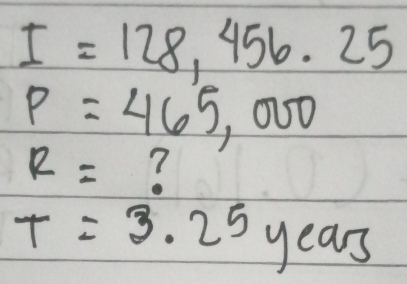 I = 128,456.25
P = 465,000
R = ?
T = 3.25 years